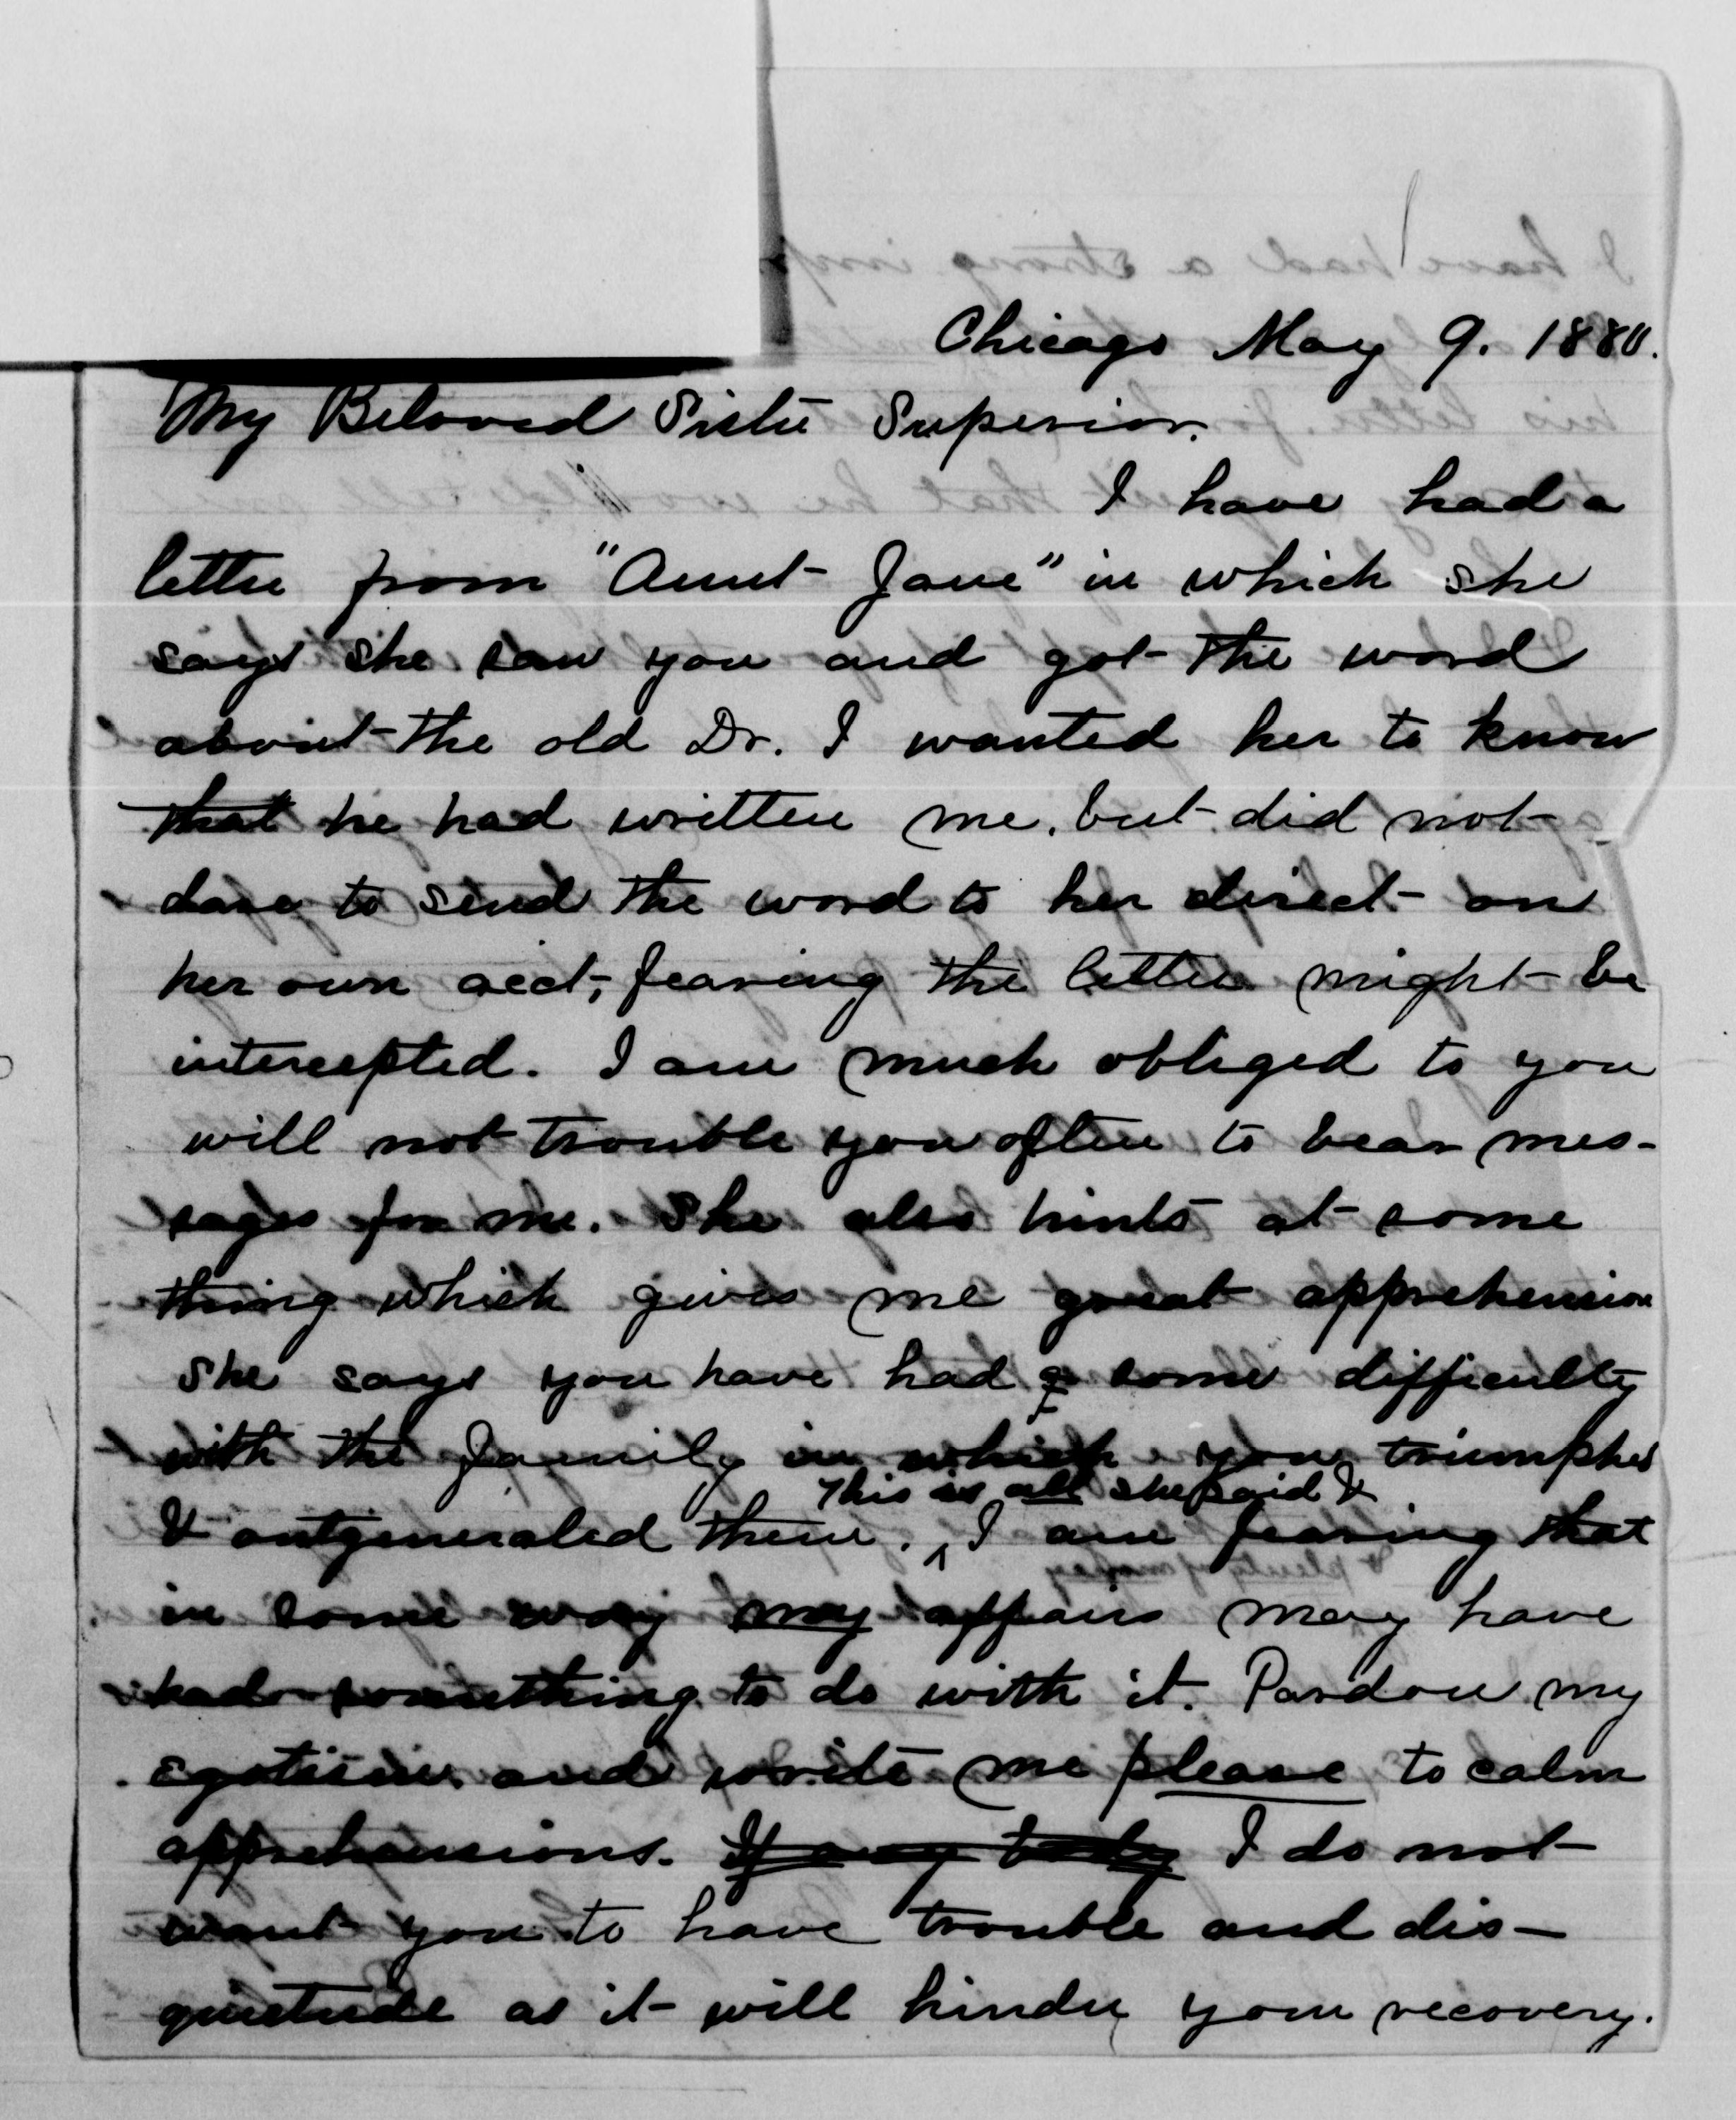 Chicago May 9. 1880.
My Beloved Sister Superior.
I have had a
letter from "Aunt Jane" in which she
says she saw you and got the word
about the old Dr. I wanted her to know
that he had written me, but did not
dare to send the word to her direct on
her own acct, fearing the letter might be
intercepted. I am much obliged to you
will not trouble you often to bear mes-
sages for me. She also hints at some
thing which gives me great apprehension
She says you have had some difficulty
with the family in which you triumphed
This is all she said &
& outgeneraled them. ^ I am fearing that
in some way my affairs may have
had something to do with it. Pardon my
egotism and write me please to calm
apprehensions. If any body I do not
want you to have trouble and dis-
quietude as it will hinder your recovery.